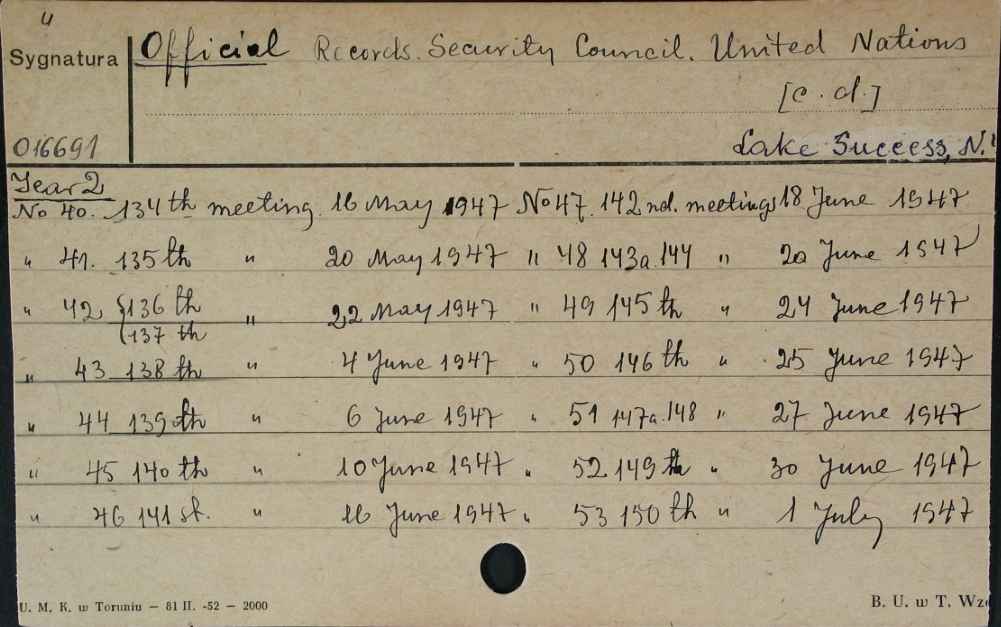 4
Sygnatura Official Records. Security Council. United Nations
[c.d.]
016691 Lake Success, N.
Year 2
No 40. 134th meeting. 16 May 1947 No 47. 142nd. meetings 18 June 1947
" 41. 135th " 20 May 1947 " 48 143a 144 " 20 June 1947
" 42 {136th " 22 May 1947 " 49 145th " 24 June 1947
(137 th
" 43 138th " 4 June 1947 " 50 146th " 25 June 1947
" 44 139th " 6 June 1947 " 51 147a.148 " 27 June 1947
" 45 140th " 10 June 1947 " 52 149th " 30 June 1947
" 46 141st. " 16 June 1947 " 53 150th " 1 July 1947
U. M. K. w Toruniu — 81 II. -52 — 2000 B. U. w T. Wz